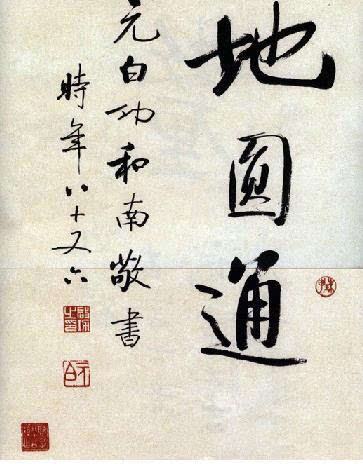 地圓通
元白功和南敬書
時年八十又六
元白